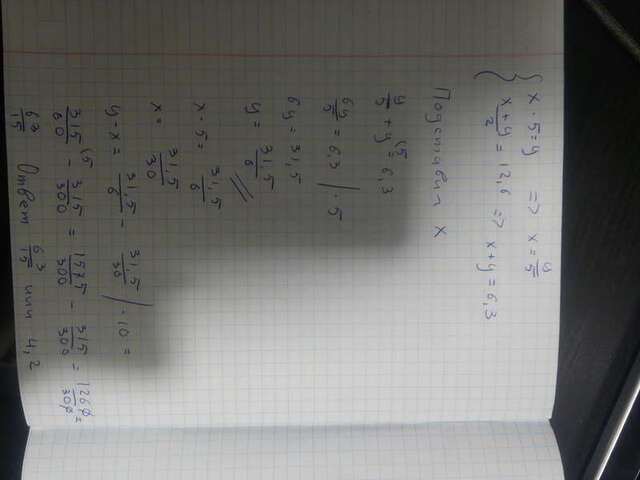 x · 5 = y => x = y/5
(x + y)/2 = 12,6 => x + y = 6,3
Подставим x
y/5 + y = 6,3
6y/5 = 6,3 / · 5
6y = 31,5
y = 31,5/6
x · 5 = 31,5/6
x = 31,5/30
y - x = 31,5/6 - 31,5/30 / · 10 =
315/60 - 315/300 = 1575/300 - 315/300 = 1260/300 =
63/15 Ответ 63/15 или 4,2